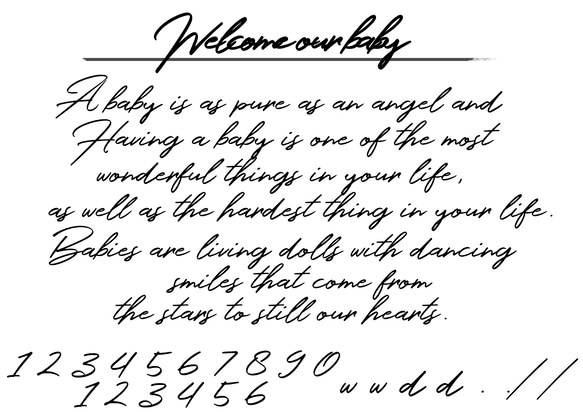 Welcome our baby
A baby is as pure as an angel and
Having a baby is one of the most
wonderful things in your life,
as well as the hardest thing in your life.
Babies are living dolls with dancing
smiles that come from
the stars to still our hearts.
1 2 3 4 5 6 7 8 9 0
1 2 3 4 5 6
w w d d . . / /